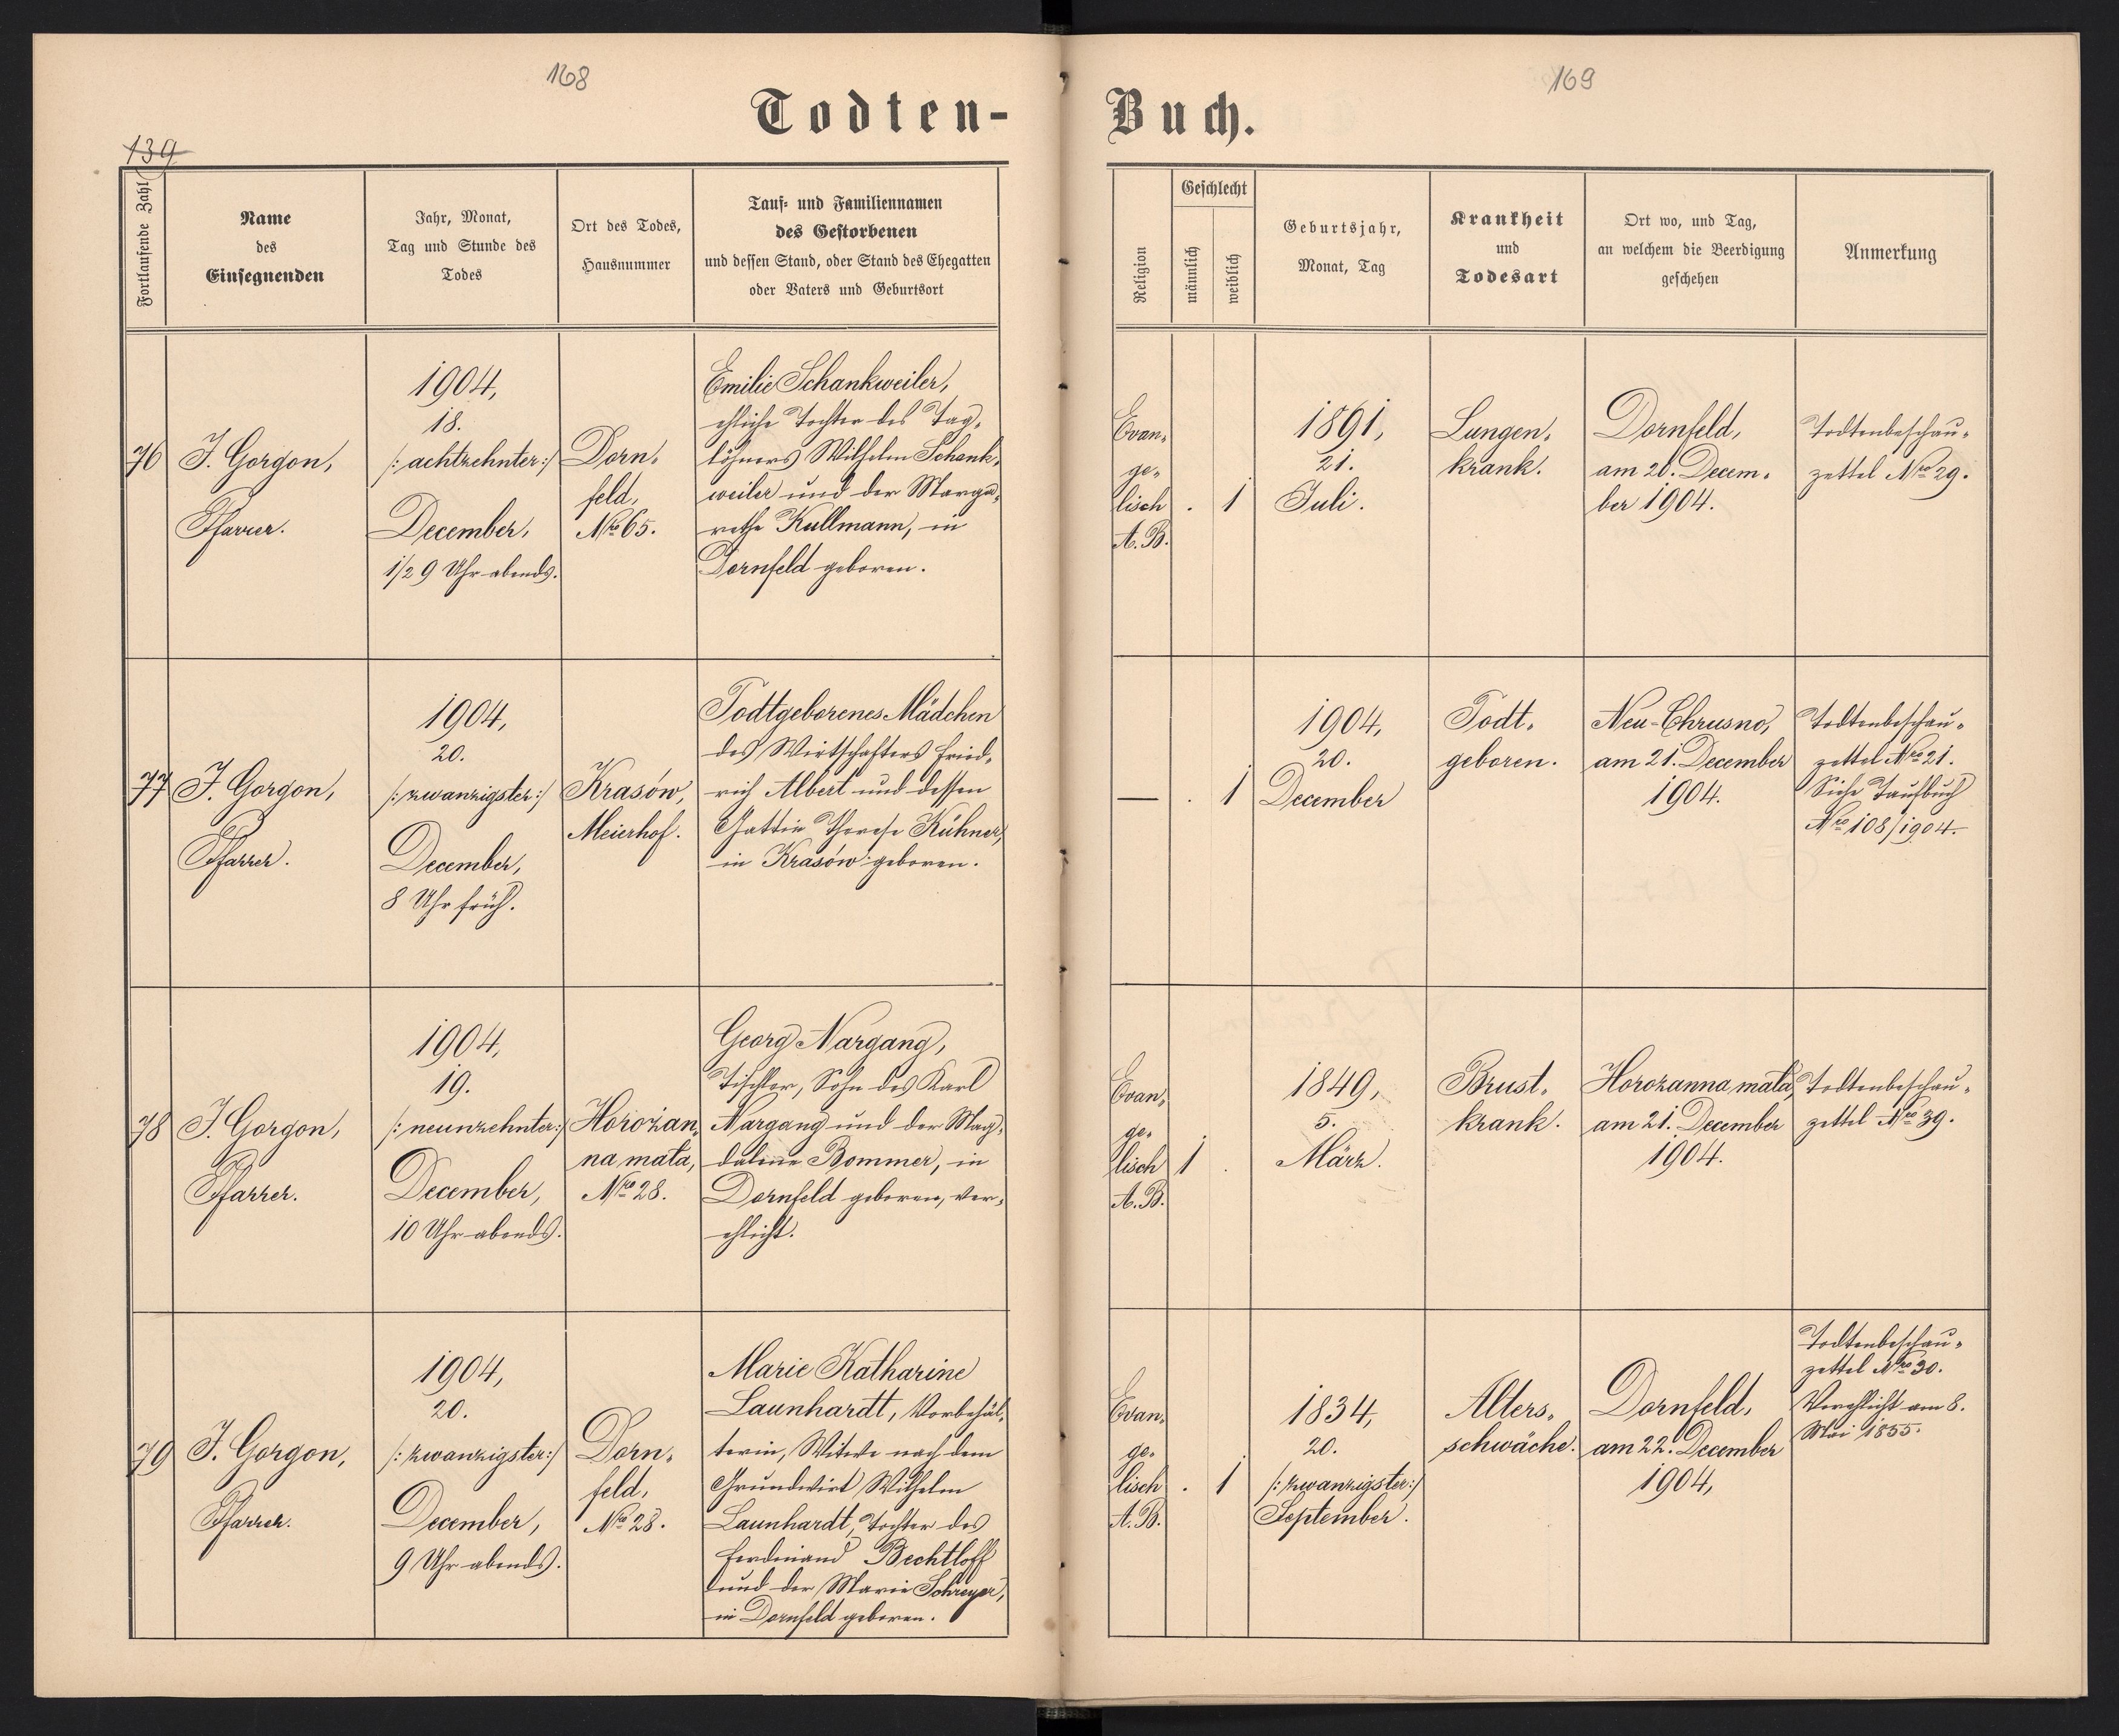 168
169
Todten-
Buch.
139
Fortlaufende Zahl
Name
des
Einsegnenden
Jahr, Monat,
Tag und Stunde des
Todes
Ort des Todes,
Hausnummer
Tauf- und Familiennamen
des Gestorbenen
und dessen Stand, oder Stand des Ehegatten
oder Vaters und Geburtsort
Religion
Geschlecht
männlich
weiblich
Geburtsjahr,
Monat, Tag
Krankheit
und
Todesart
Ort wo, und Tag,
an welchem die Beerdigung
geschehen
Anmerkung
76
J. Gorgon,
Pfarrer.
1904,
18.
/: achtzehnter :/
December,
1/2 9 Uhr abends.
Dorn-
feld,
Nro 65.
Emilie Schankweiler,
ehliche Tochter des Tag-
löhners Wilhelm Schank-
weiler und der Marga-
rethe Kullmann, in
Dornfeld geboren.
Evan-
ge-
lisch
A. B.
.
1
1891,
21.
Juli.
Lungen-
krank.
Dornfeld,
am 20. Decem-
ber 1904.
Todtenbeschau-
zettel Nro 29.
77
J. Gorgon,
Pfarrer.
1904,
20.
/: zwanzigster :/
December,
8 Uhr früh.
Krasów,
Meierhof.
Todtgeborenes Mädchen
des Wirtschafters Fried-
rich Albert und dessen
Gattin Therese Kühner,
in Krasów geboren.
—
.
1
1904,
20.
December
Todt-
geboren.
Neu-Chrusno,
am 21. December
1904.
Todtenbeschau-
zettel Nro 21.
Siehe Taufbuch
Nro 108/1904.
78
J. Gorgon,
Pfarrer.
1904,
19.
/: neunzehnter :/
December,
10 Uhr abends.
Horożan-
na mała,
Nro 28.
Georg Nargang,
Tischler, Sohn des Karl
Nargang und der Mag-
dalene Bommer, in
Dornfeld geboren, ver-
ehlicht.
Evan-
ge-
lisch
A. B.
1
.
1849,
5.
März.
Brust-
krank.
Horożanna mała,
am 21. December
1904.
Todtenbeschau-
zettel Nro 39.
79
J. Gorgon,
Pfarrer.
1904,
20.
/: zwanzigster :/
December,
9 Uhr abends.
Dorn-
feld,
Nro 28.
Marie Katharine
Launhardt, Vorbehäl-
terin, Witwe nach dem
Grundwirt Wilhelm
Launhardt, Tochter des
Ferdinand Bechtloff
und der Marie Schreyer,
in Dornfeld geboren.
Evan-
ge-
lisch
A. B.
.
1
1834,
20.
/: zwanzigster :/
September.
Alters-
schwäche.
Dornfeld,
am 22. December
1904,
Todtenbeschau-
zettel Nro 30.
Verehlicht am 8.
Mai 1855.